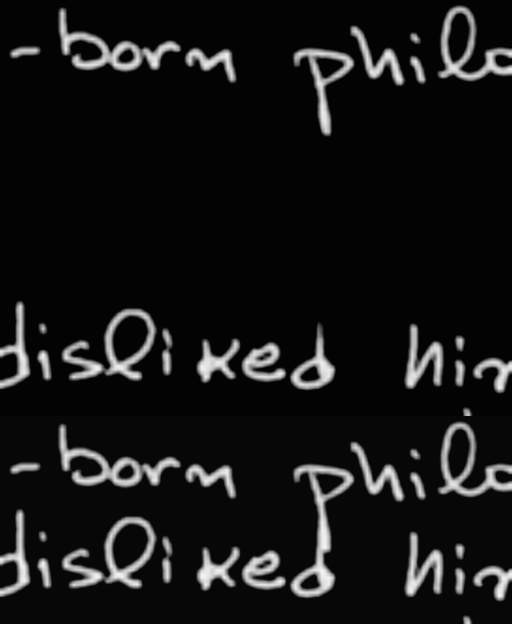 -born philo
disliked him
-born philo
disliked him